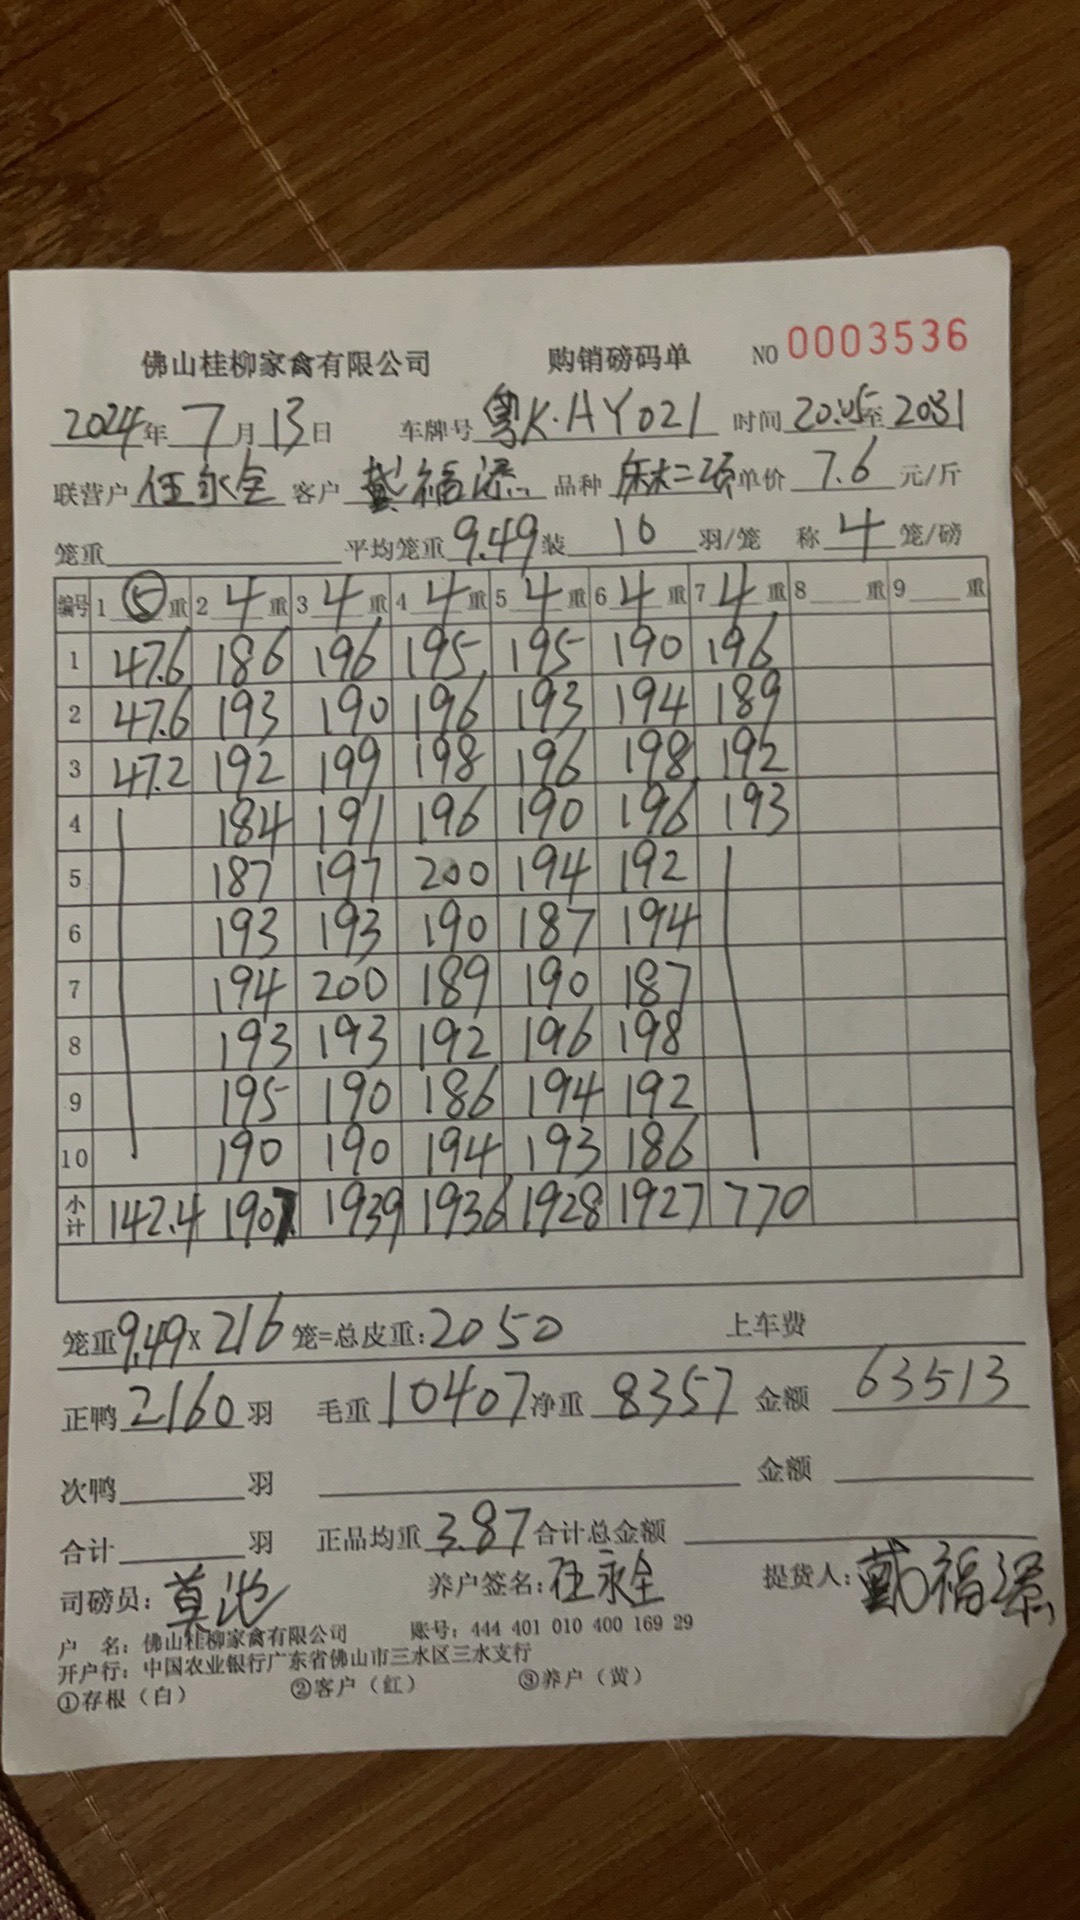 佛山桂柳家禽有限公司 购销磅码单 NO 0003536
2024年 7月 13日 车牌号 粤K·AY021 时间 20:05至 2031
联营户 任永全 客户 戴福添 品种 单价 7.6 元/斤
笼重 平均笼重 9.49 装 10 羽/笼 称 4 笼/磅
编号 1 ⑤ 重 2 4 重 3 4 重 4 4 重 5 4 重 6 4 重 7 4 重 8 重 9 重
1 47.6 186 196 195 195 190 196
2 47.6 193 190 196 193 194 189
3 47.2 192 199 198 196 198 192
4 184 191 196 190 196 193
5 187 197 200 194 192
6 193 193 190 187 194
7 194 200 189 190 187
8 193 193 192 196 198
9 195 190 186 194 192
10 190 190 194 193 186
小计 142.4 1907 1939 1936 1928 1927 770
笼重 9.49 x 216 笼=总皮重: 2050 上车费
正鸭 2160 羽 毛重 10407 净重 8357 金额 63513
次鸭 羽 金额
合计 羽 正品均重 3.87 合计总金额
司磅员: 莫池 养户签名: 任永全 提货人: 戴福添
户 名: 佛山桂柳家禽有限公司 账号: 444 401 010 400 169 29
开户行: 中国农业银行广东省佛山市三水区三水支行
①存根（白） ②客户（红） ③养户（黄）